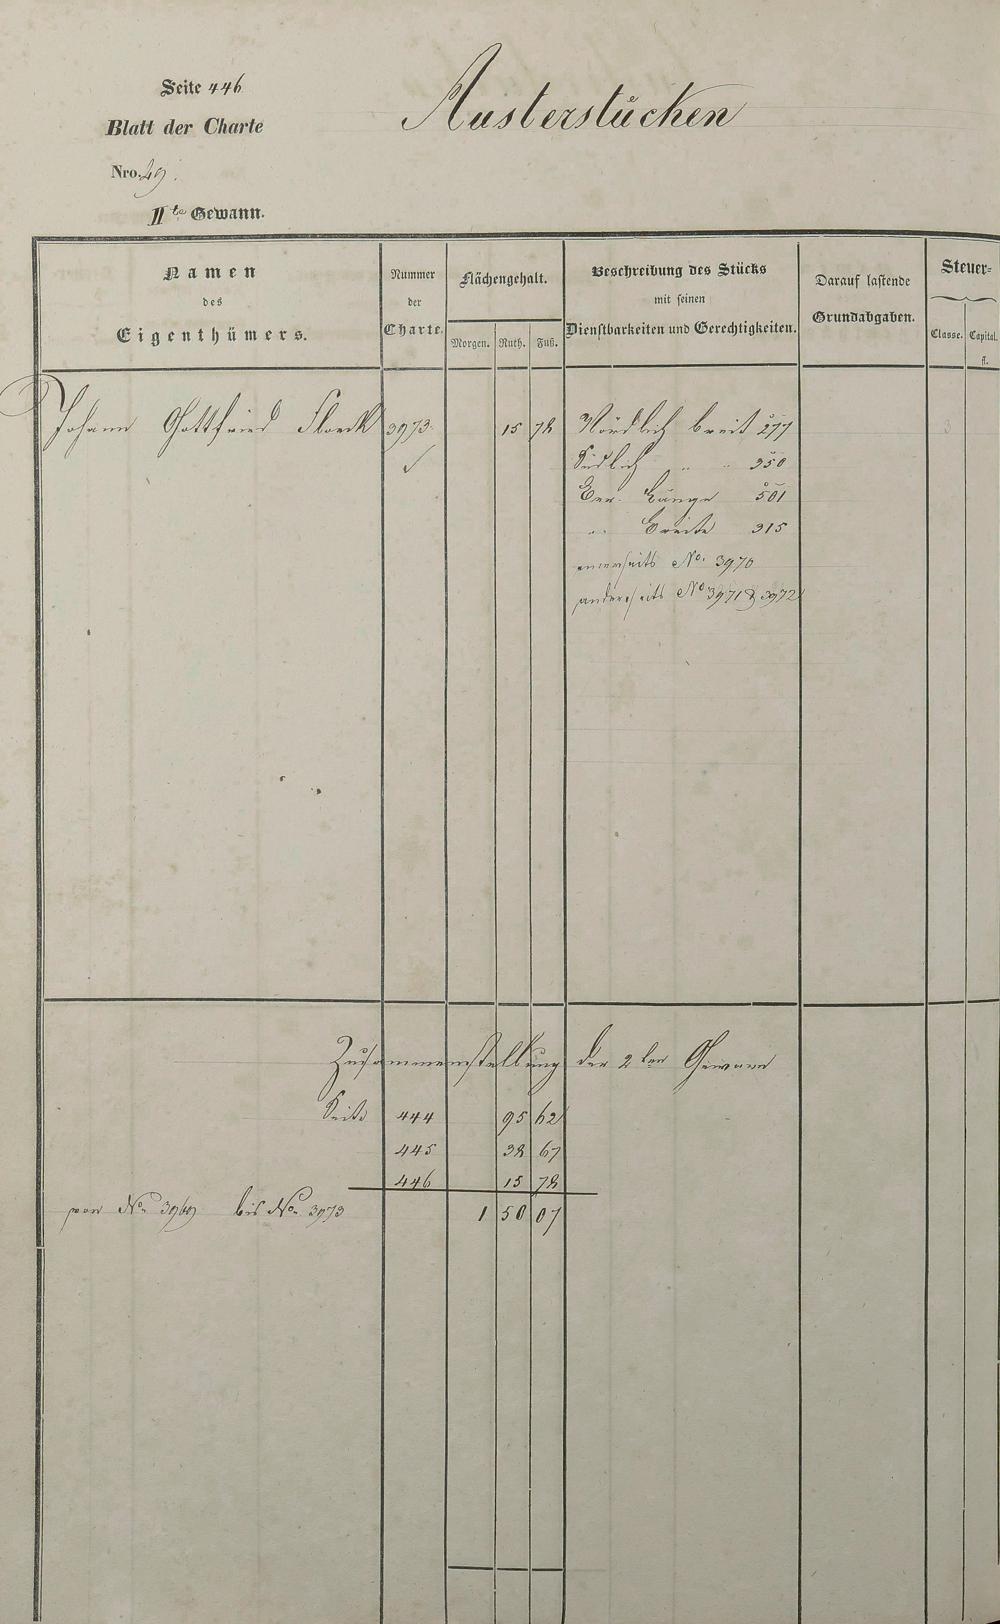 Seite 446
Austerstücken
Blatt der Charte
Nro. 29.
IIte Gewann.
Namen
des
Eigenthümers.
Nummer
der
Charte.
Flächengehalt.
Morgen. Ruth. Fuß.
Beschreibung des Stücks
mit seinen
Dienstbarkeiten und Gerechtigkeiten.
Darauf lastende
Grundabgaben.
Steuer-
Classe. Capital.
fl.
Johann Gottfried Floeck 3973. 15 78 Nördlich breit 277 3
Südlich " " 350
Ber. Länge 501
" Breite 315
einerseits No. 3970
anderseits No 3971 & 3972
Zusammenstellung der 2ten Gewann
Seite 444 95 62
445 38 67
446 15 78
von No. 3969 bis No. 3973 1 50 07